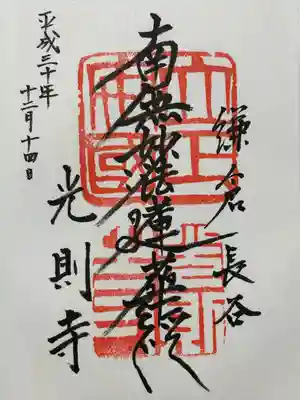 鎌倉長谷
南無妙法蓮華経
光則寺
平成三十年
十二月十四日